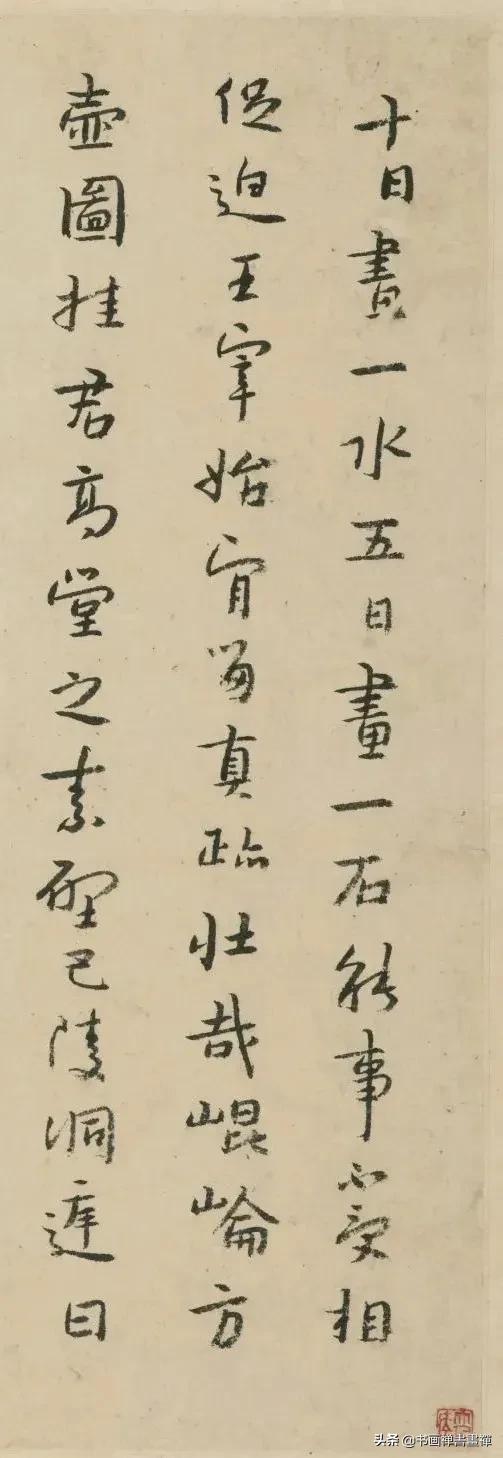 十日畫一水五日畫一石能事不受相
促迫王宰始肯留真跡壯哉崐崘方
壺圖挂君高堂之素壁巴陵洞遲日
头条 @书画禅書畫禪